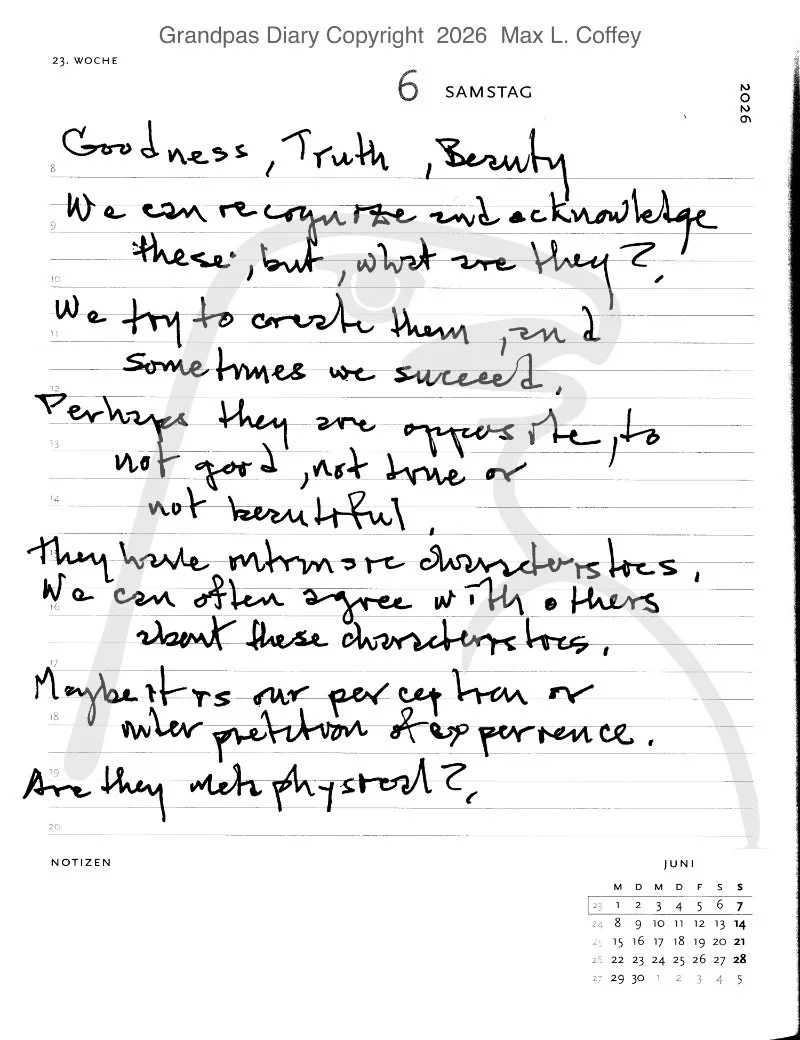 Grandpas Diary Copyright 2026 Max L. Coffey
23. WOCHE
6 SAMSTAG
2026
Goodness, Truth, Beauty
We can recognize and acknowledge
these, but, what are they?
We try to create them, and
sometimes we succeed.
Perhaps they are opposite, to
not good, not true or
not beautiful.
They have intrinsic characteristics.
We can often agree with others
about these characteristics.
Maybe it is our perception or
interpretition of experience.
Are they metaphysical?
8
9
10
11
12
13
14
15
16
17
18
19
20
NOTIZEN
JUNI
M D M D F S S
23 1 2 3 4 5 6 7
24 8 9 10 11 12 13 14
25 15 16 17 18 19 20 21
26 22 23 24 25 26 27 28
27 29 30 1 2 3 4 5